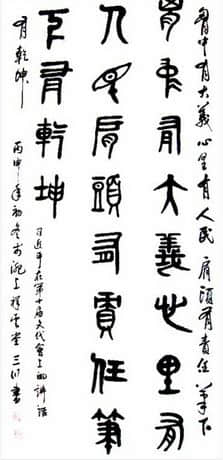 胸中有大義心里有人民肩頭有責任筆下
胸中有大義心里有
人民肩頭有責任筆
下有乾坤
习近平在第十届文代会上的讲话
有乾坤
丙申年初冬於滬上 堂三川書